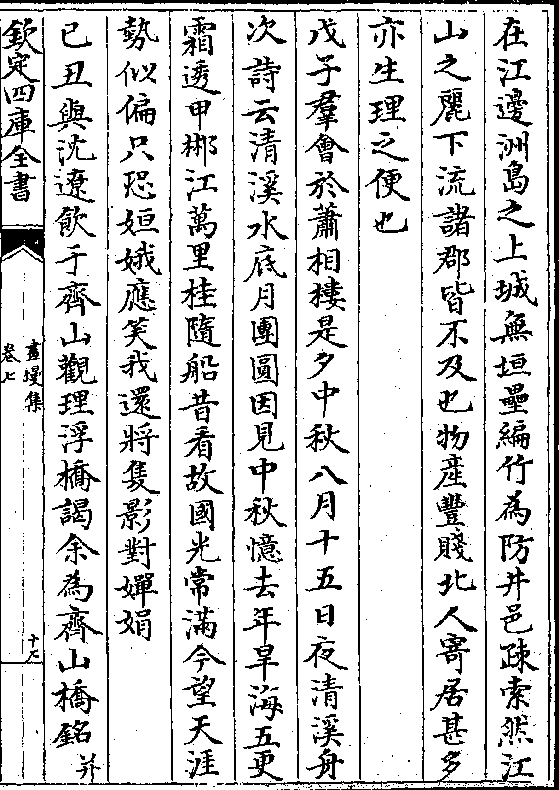 在江邊洲島之上城無垣壘編竹為防井邑疎索然江
山之麗下流諸郡皆不及也物産豐賤北人寄居甚多
亦生理之便也
戊子羣會於蕭相樓是夕中秋八月十五日夜清溪舟
次詩云清溪水底月團圓因見中秋憶去年旱海五更
霜透甲郴江萬里桂隨船昔看故國光常滿今望天涯
勢似偏只恐姮娥應笑我還將隻影對嬋娟
己丑與沈遼飲于齊山觀理浮橋謁余為齊山橋銘并
欽定四庫全書
畫墁集
卷七
十七